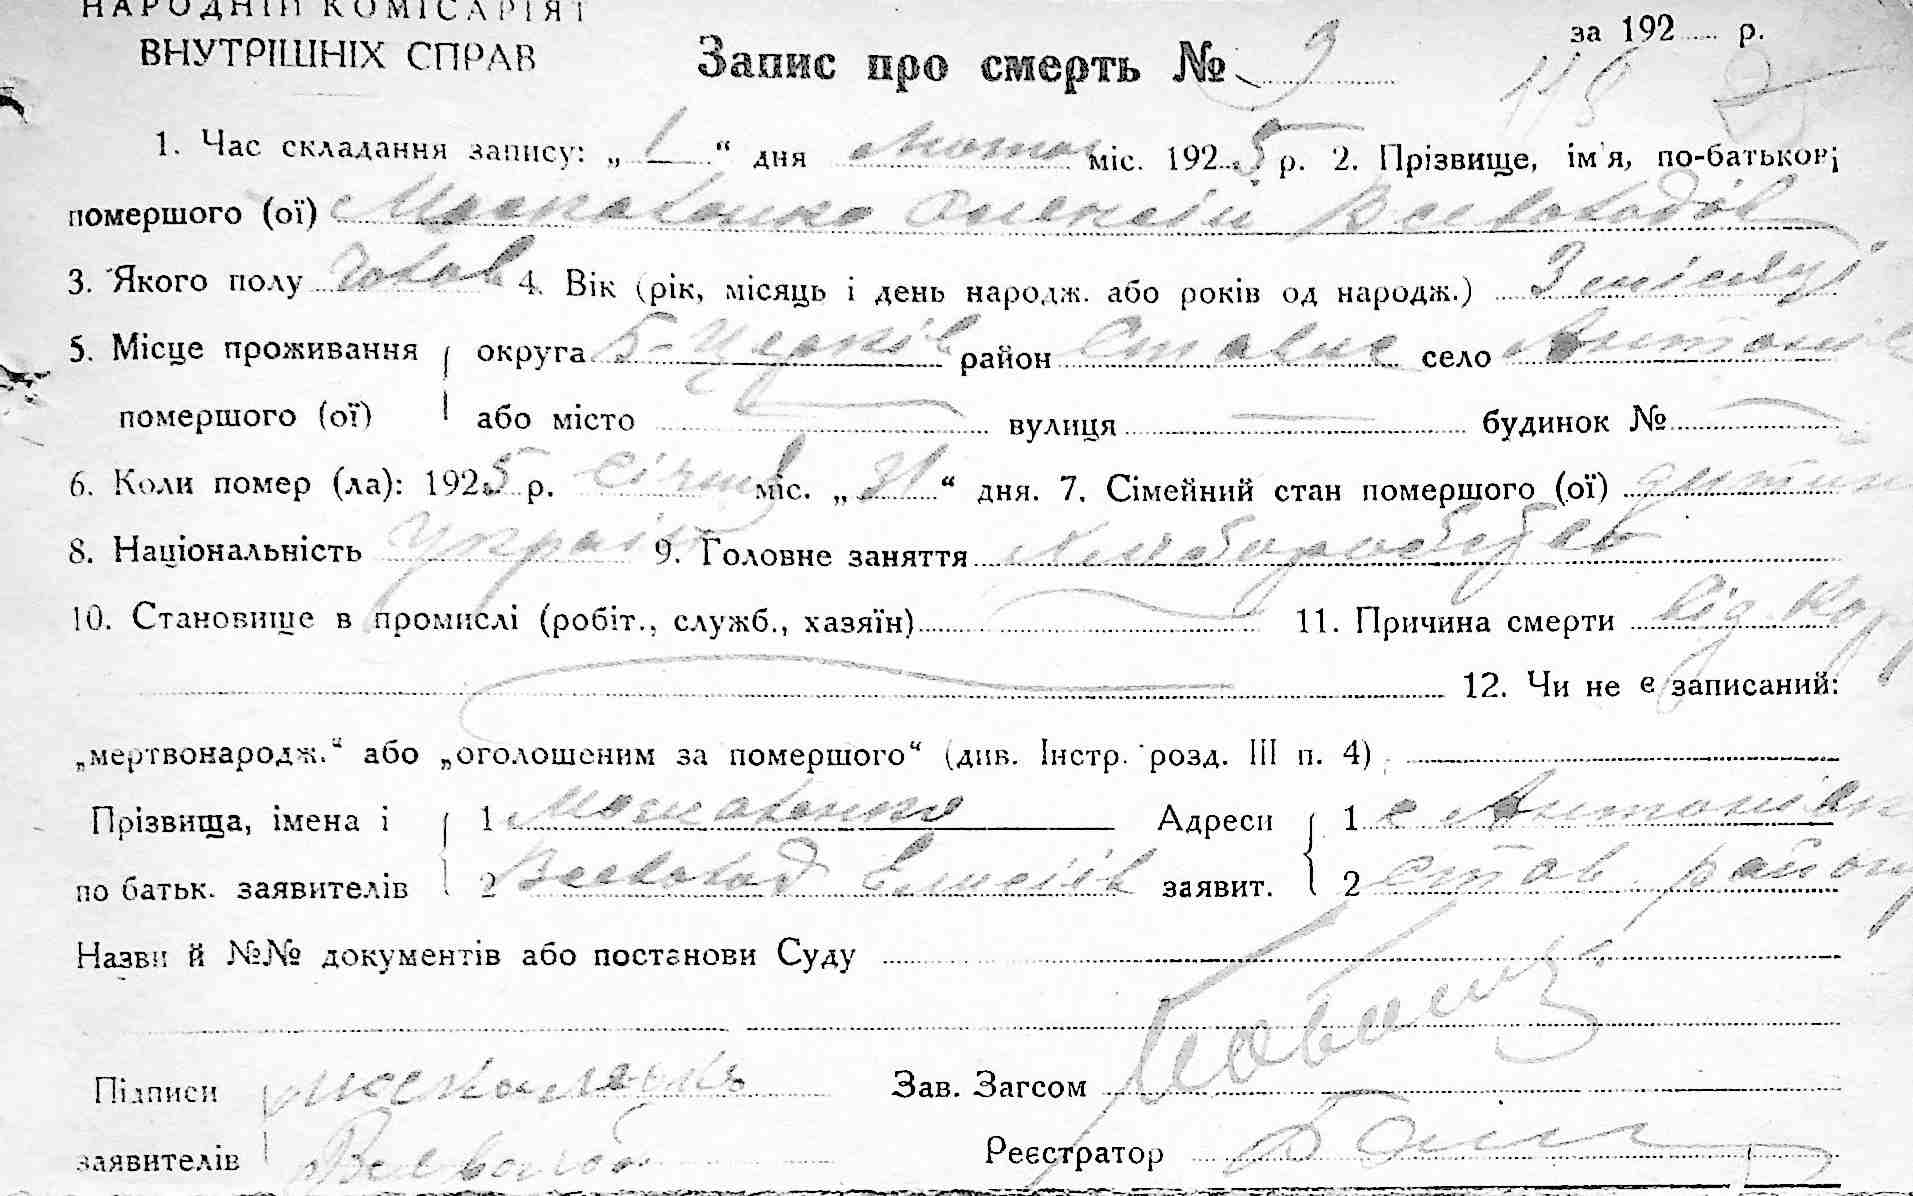 НАРОДНІЙ КОМІСАРІЯТ
ВНУТРІШНІХ СПРАВ
Запис про смерть № 9 за 192 р.
1. Час складання запису: „ 1 “ дня лютого міс. 1925 р. 2. Прізвище, ім'я, по-батькові
помершого (ої) Москаленко Олексій Всеволодів
3. Якого полу чолов 4. Вік (рік, місяць і день народж. або років од народж.) 3 місяці
5. Місце проживання округа Б-Церків район Ставище село Антонів
помершого (ої) або місто — вулиця — будинок № —
6. Коли помер (ла): 1925 р. січня міс. „ 31 “ дня. 7. Сімейний стан помершого (ої) дитин
8. Національність Україн 9. Головне заняття Хліборобств
10. Становище в промислі (робіт., служб., хазяїн) 11. Причина смерти від кор
12. Чи не є записаний:
„мертвонародж.“ або „оголошеним за помершого“ (див. Інстр. розд. III п. 4)
Прізвища, імена і 1 Москаленко Адреси 1 с Антонівк
по батьк. заявителів 2 Всеволод заявит. 2 Став. району
Назви й №№ документів або постанови Суду
Підписи Москаленко Зав. Загсом
заявителів Всеволод Реєстратор